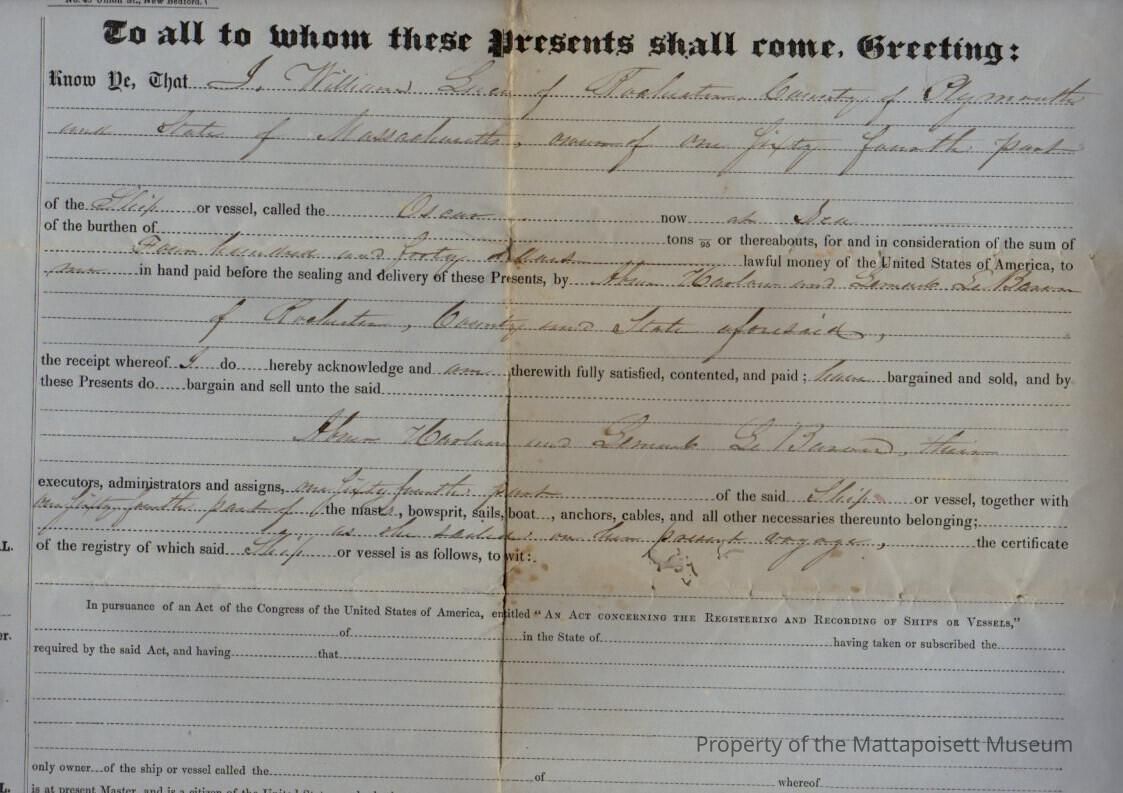 No. 45 Union St., New Bedford.
To all to whom these Presents shall come, Greeting:
Know Ye, That I, William of Rochester County of Plymouth
and State of Massachusetts, owner of one sixty fourth part
of the Ship or vessel, called the Oscar now at Sea
of the burthen of
tons 95 or thereabouts, for and in consideration of the sum of
Four hundred and forty dollars lawful money of the United States of America, to
me in hand paid before the sealing and delivery of these Presents, by Abner Harlow and Lemuel Le Baron
of Rochester, County and State aforesaid,
the receipt whereof I do hereby acknowledge and am therewith fully satisfied, contented, and paid; have bargained and sold, and by
these Presents do bargain and sell unto the said
Abner Harlow and Lemuel Le Baron, their
executors, administrators and assigns, one sixty fourth part of the said Ship or vessel, together with
one sixty fourth part of the masts, bowsprit, sails, boat, anchors, cables, and all other necessaries thereunto belonging;
as she sailed on her present voyage, the certificate
L.
of the registry of which said Ship or vessel is as follows, to wit:
In pursuance of an Act of the Congress of the United States of America, entitled "An Act concerning the Registering and Recording of Ships or Vessels,"
er.
of in the State of having taken or subscribed the
required by the said Act, and having that
Property of the Mattapoisett Museum
only owner of the ship or vessel called the of whereof
L.
is at present Master, and is a citizen of the United States